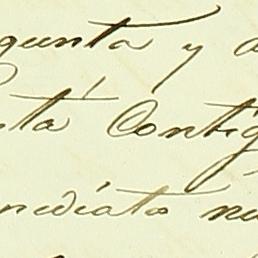 gunta y a
ntá Contig
mediato nu